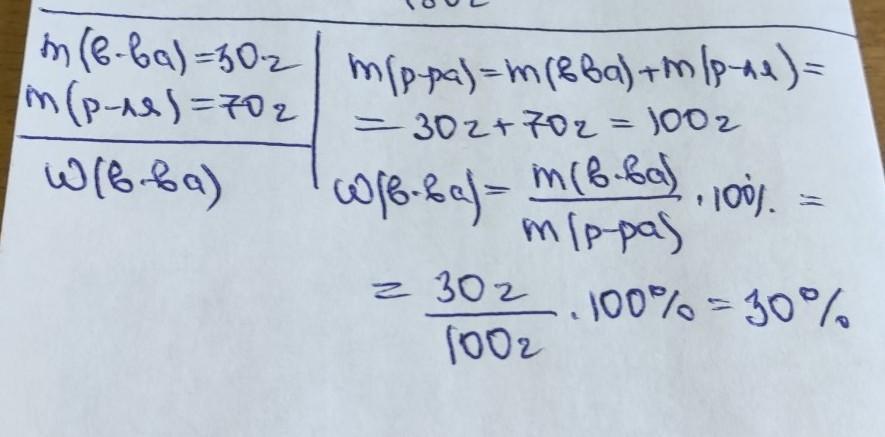 m(в-ва)=30г
m(р-ля)=70г
w(в-ва)
m(р-ра)=m(вва)+m(р-ля)=
=30г+70г=100г
w(в-ва)= m(в-ва) / m(р-ра) · 100% =
= 30г / 100г · 100% = 30%